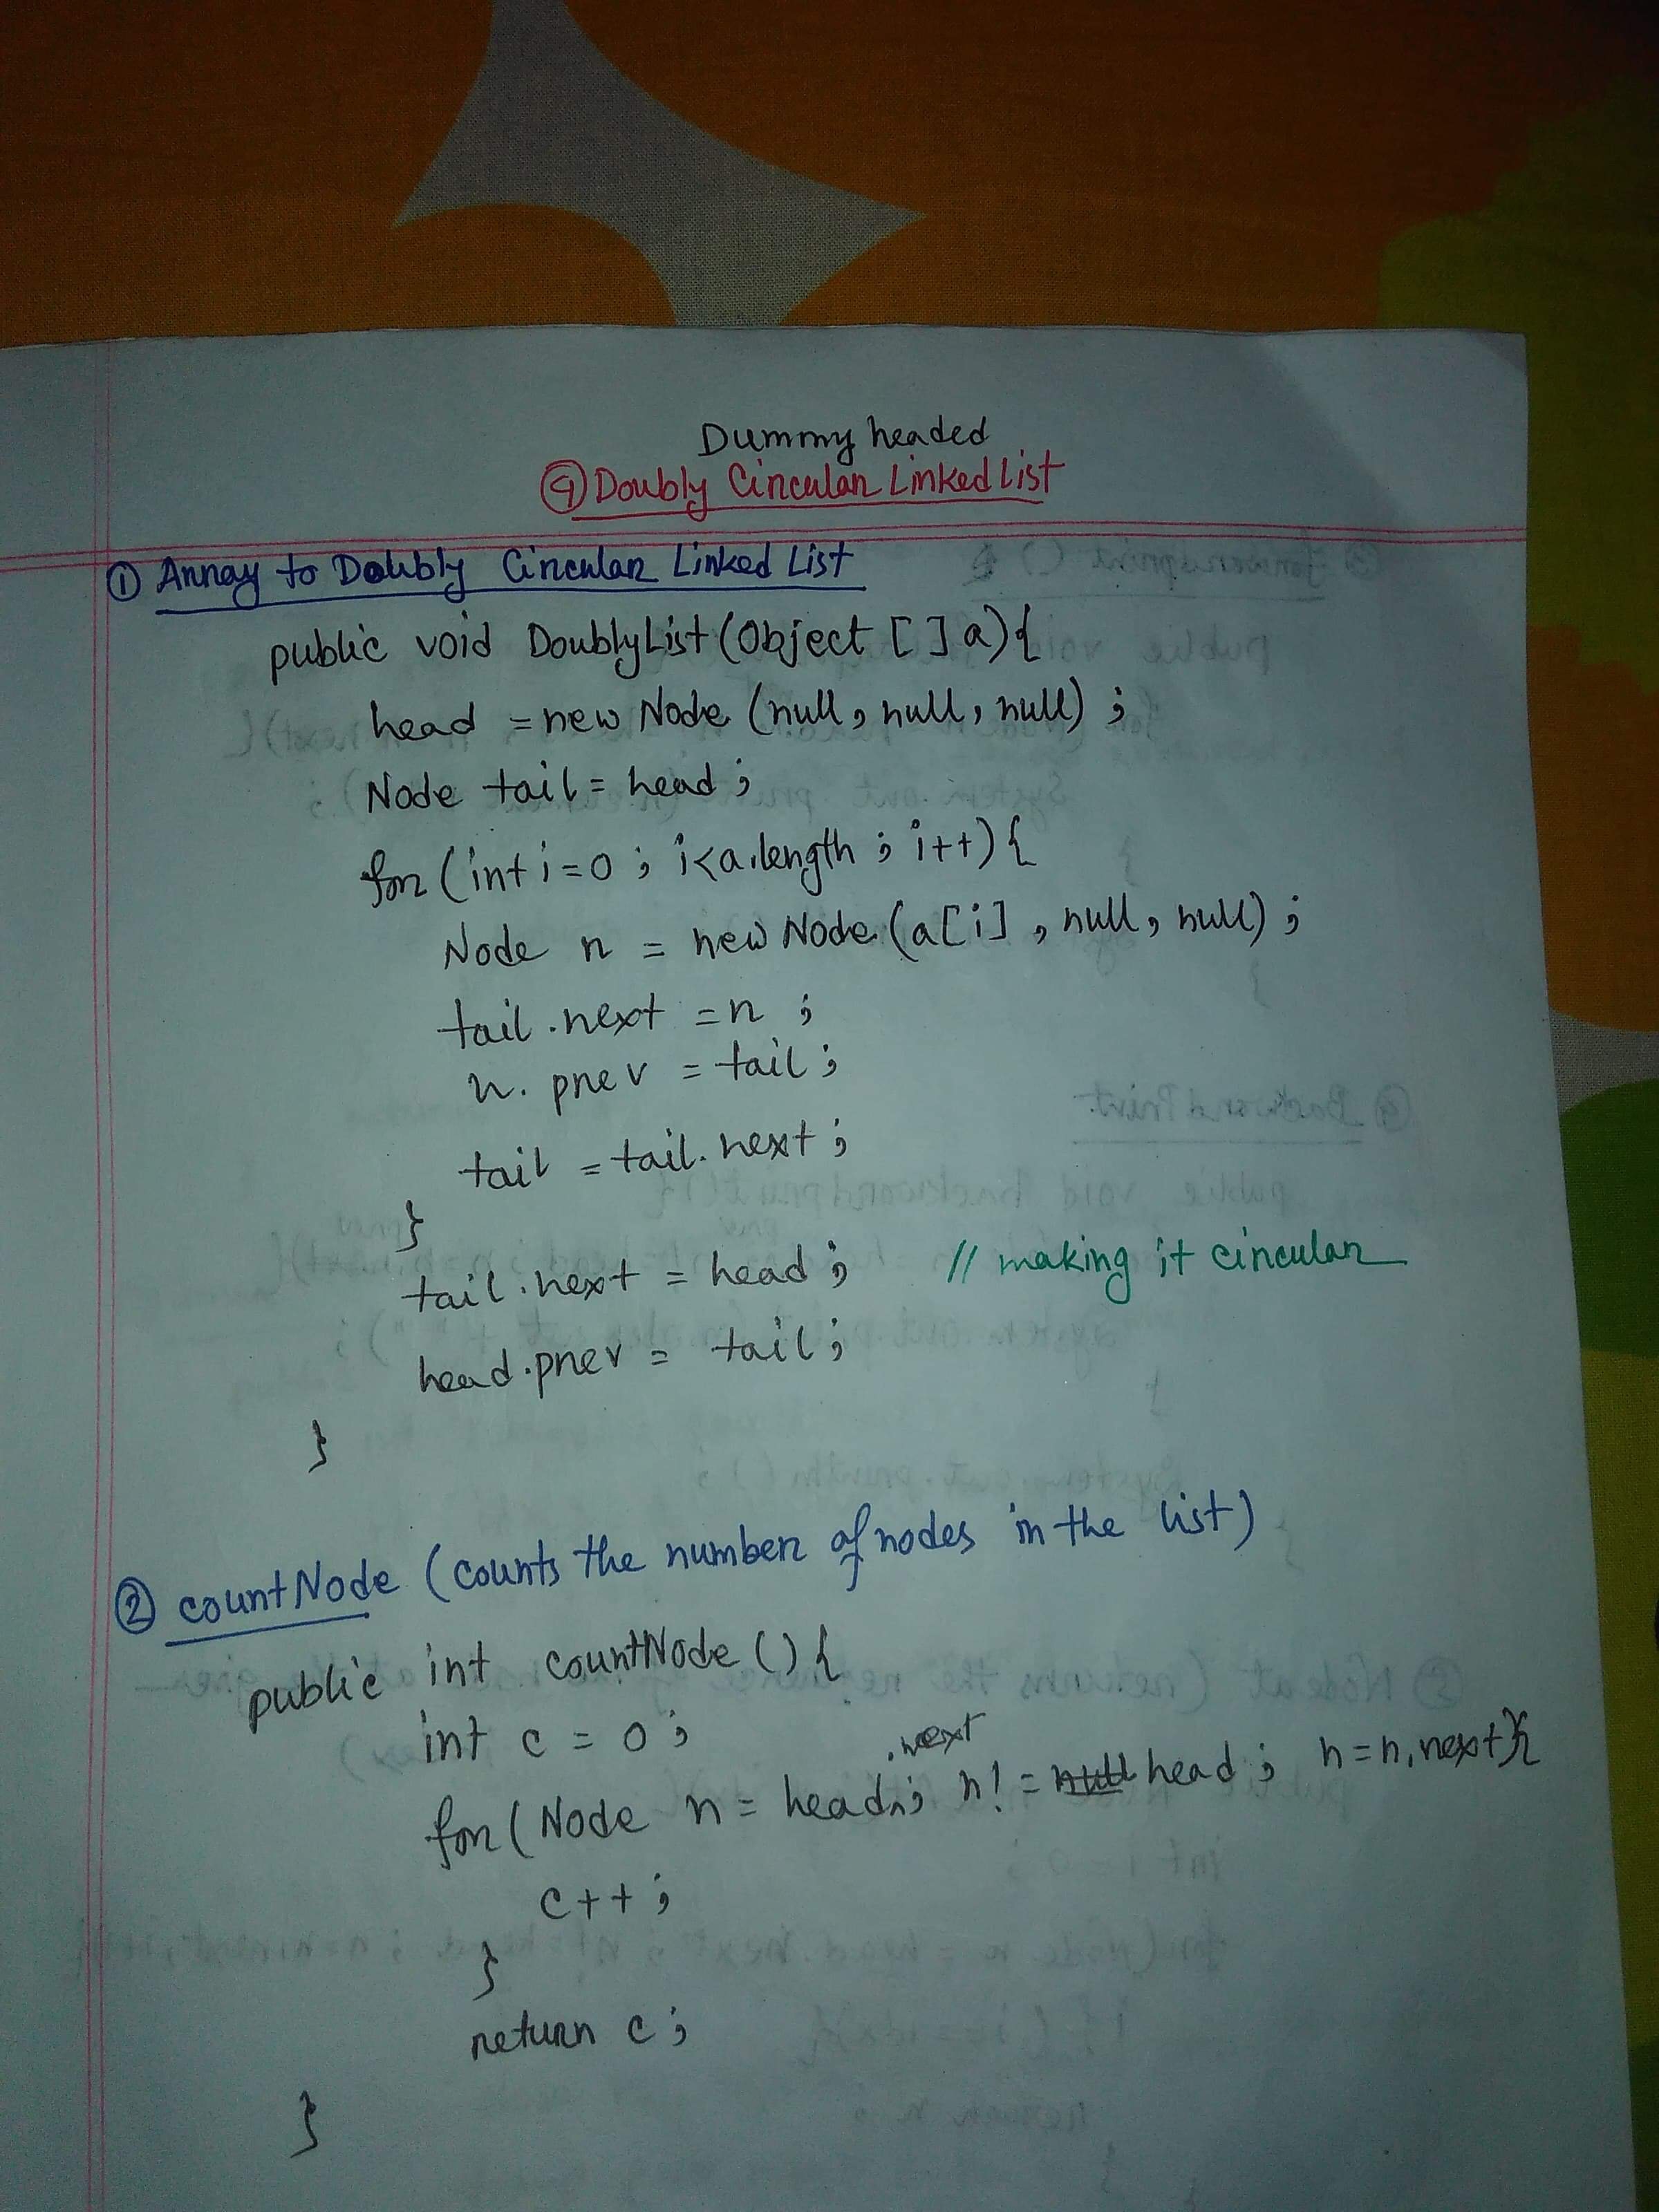 Dummy headed
④ Doubly Circular Linked List
① Array to Doubly Circular Linked List
public void DoublyList (Object [ ] a) {
head = new Node (null, null, null) ;
Node tail = head ;
for (int i = 0 ; i < a.length ; i++) {
Node n = new Node (a[i] , null, null) ;
tail.next = n ;
n.prev = tail ;
tail = tail.next ;
}
tail.next = head ; // making it circular
head.prev = tail ;
}
② countNode (counts the number of nodes in the list)
public int countNode () {
int c = 0 ;
for (Node n = head.next ; n! = head ; n = n.next) {
c++ ;
}
return c ;
}